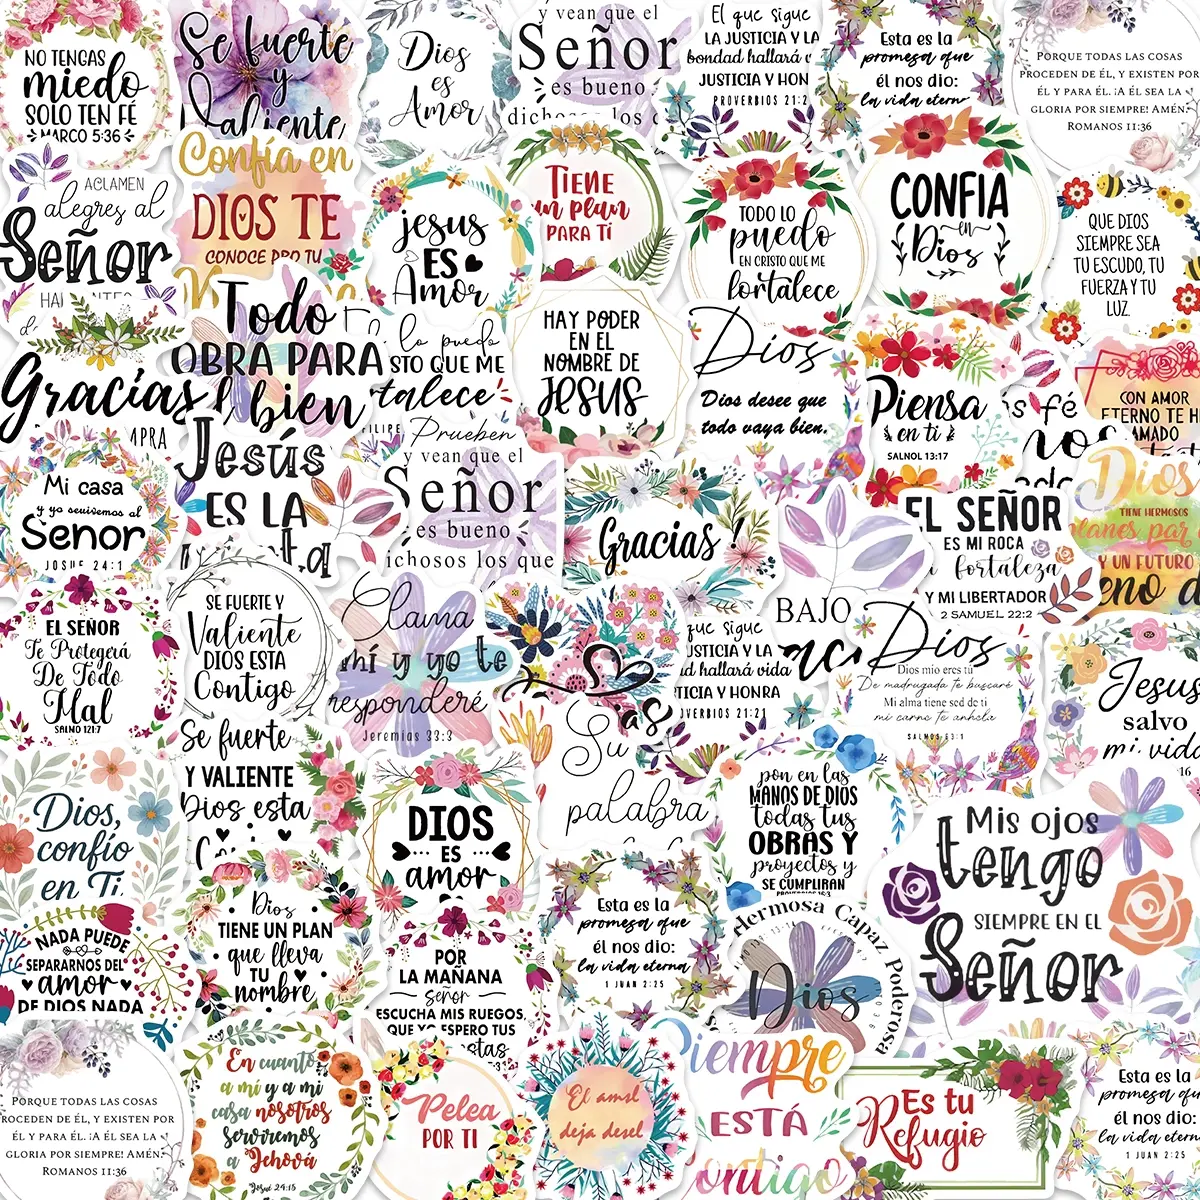 NO TENGAS
miedo
SOLO TEN FÉ
MARCO 5:36
Se fuerte
y
Valiente
Dios
es
Amor
y vean que el
Señor
es bueno
dichosos los
El que sigue
LA JUSTICIA Y LA
bondad hallará
JUSTICIA Y HON
PROVERBIOS 21:2
Esta es la
promesa que
él nos dio:
la vida etern
PORQUE TODAS LAS COSAS
PROCEDEN DE ÉL, Y EXISTEN POR
ÉL Y PARA ÉL. ¡A ÉL SEA LA
GLORIA POR SIEMPRE! AMÉN.
ROMANOS 11:36
ACLAMEN
alegres al
Señor
Confía en
DIOS TE
CONOCE
jesus
ES
Amor
TIENE
un plan
PARA TÍ
TODO LO
puedo
EN CRISTO QUE ME
fortalece
CONFIA
en
Dios
QUE DIOS
SIEMPRE SEA
TU ESCUDO, TU
FUERZA Y TU
LUZ.
Gracias
Todo
OBRA PARA
bien
lo puedo
STO QUE ME
talece
FILIPE
HAY PODER
EN EL
NOMBRE DE
JESUS
Dios
Dios desee que
todo vaya bien.
Piensa
en ti
SALNOL 13:17
CON AMOR
ETERNO TE H
AMADO
Mi casa
y yo serviremos al
Senor
JOSUE 24:1
Jesús
ES LA
Prueben
y vean que el
Señor
es bueno
ichosos los que
Gracias!
BAJO
EL SEÑOR
ES MI ROCA
fortaleza
Y MI LIBERTADOR
2 SAMUEL 22:2
Dios
TIENE HERMOSOS
lanes par
Y UN FUTURO
eno d
EL SEÑOR
Te Protegerá
De Todo
Mal
SALMO 121:7
SE FUERTE Y
Valiente
DIOS ESTA
Contigo
Clama
mí y yo te
responderé
Jeremías 33:3
que sigue
USTICIA Y LA
ad hallará vida
TICIA Y HONRA
OVERBIOS 21:21
Dios
Dios mio eres tú
De madrugada te buscaré
Mi alma tiene sed de ti
mi carne te anhela
SALMOS 63:1
Jesus
salvo
mi vida
16
Dios,
confío
en Ti.
Se fuerte
Y VALIENTE
Dios esta
DIOS
ES
amor
Su
palabra
pon en las
MANOS DE DIOS
todas tus
OBRAS Y
proyectos y
SE CUMPLIRAN
PROVERBIOS 16:3
Mis ojos
tengo
SIEMPRE EN EL
Señor
NADA PUEDE
SEPARARNOS DEL
amor
DE DIOS NADA
Dios
TIENE UN PLAN
que lleva
TU
nombre
POR
LA MAÑANA
Señor
ESCUCHA MIS RUEGOS,
QUE YO ESPERO TUS
Esta es la
promesa que
él nos dio:
la vida eterna
1 JUAN 2:25
Hermosa Capaz Poderosa
Dios
PORQUE TODAS LAS COSAS
ROCEDEN DE ÉL, Y EXISTEN POR
ÉL Y PARA ÉL. ¡A ÉL SEA LA
GLORIA POR SIEMPRE! AMÉN.
ROMANOS 11:36
En cuanto
a mí y a mi
casa nosotros
serviremos
a Jehová
Josué 24:15
Pelea
POR TI
El amsl
deja desel
Siempre
ESTÁ
ontigo
Es tu
Refugio
Esta es la
promesa que
él nos dio:
la vida eterna
1 JUAN 2:25